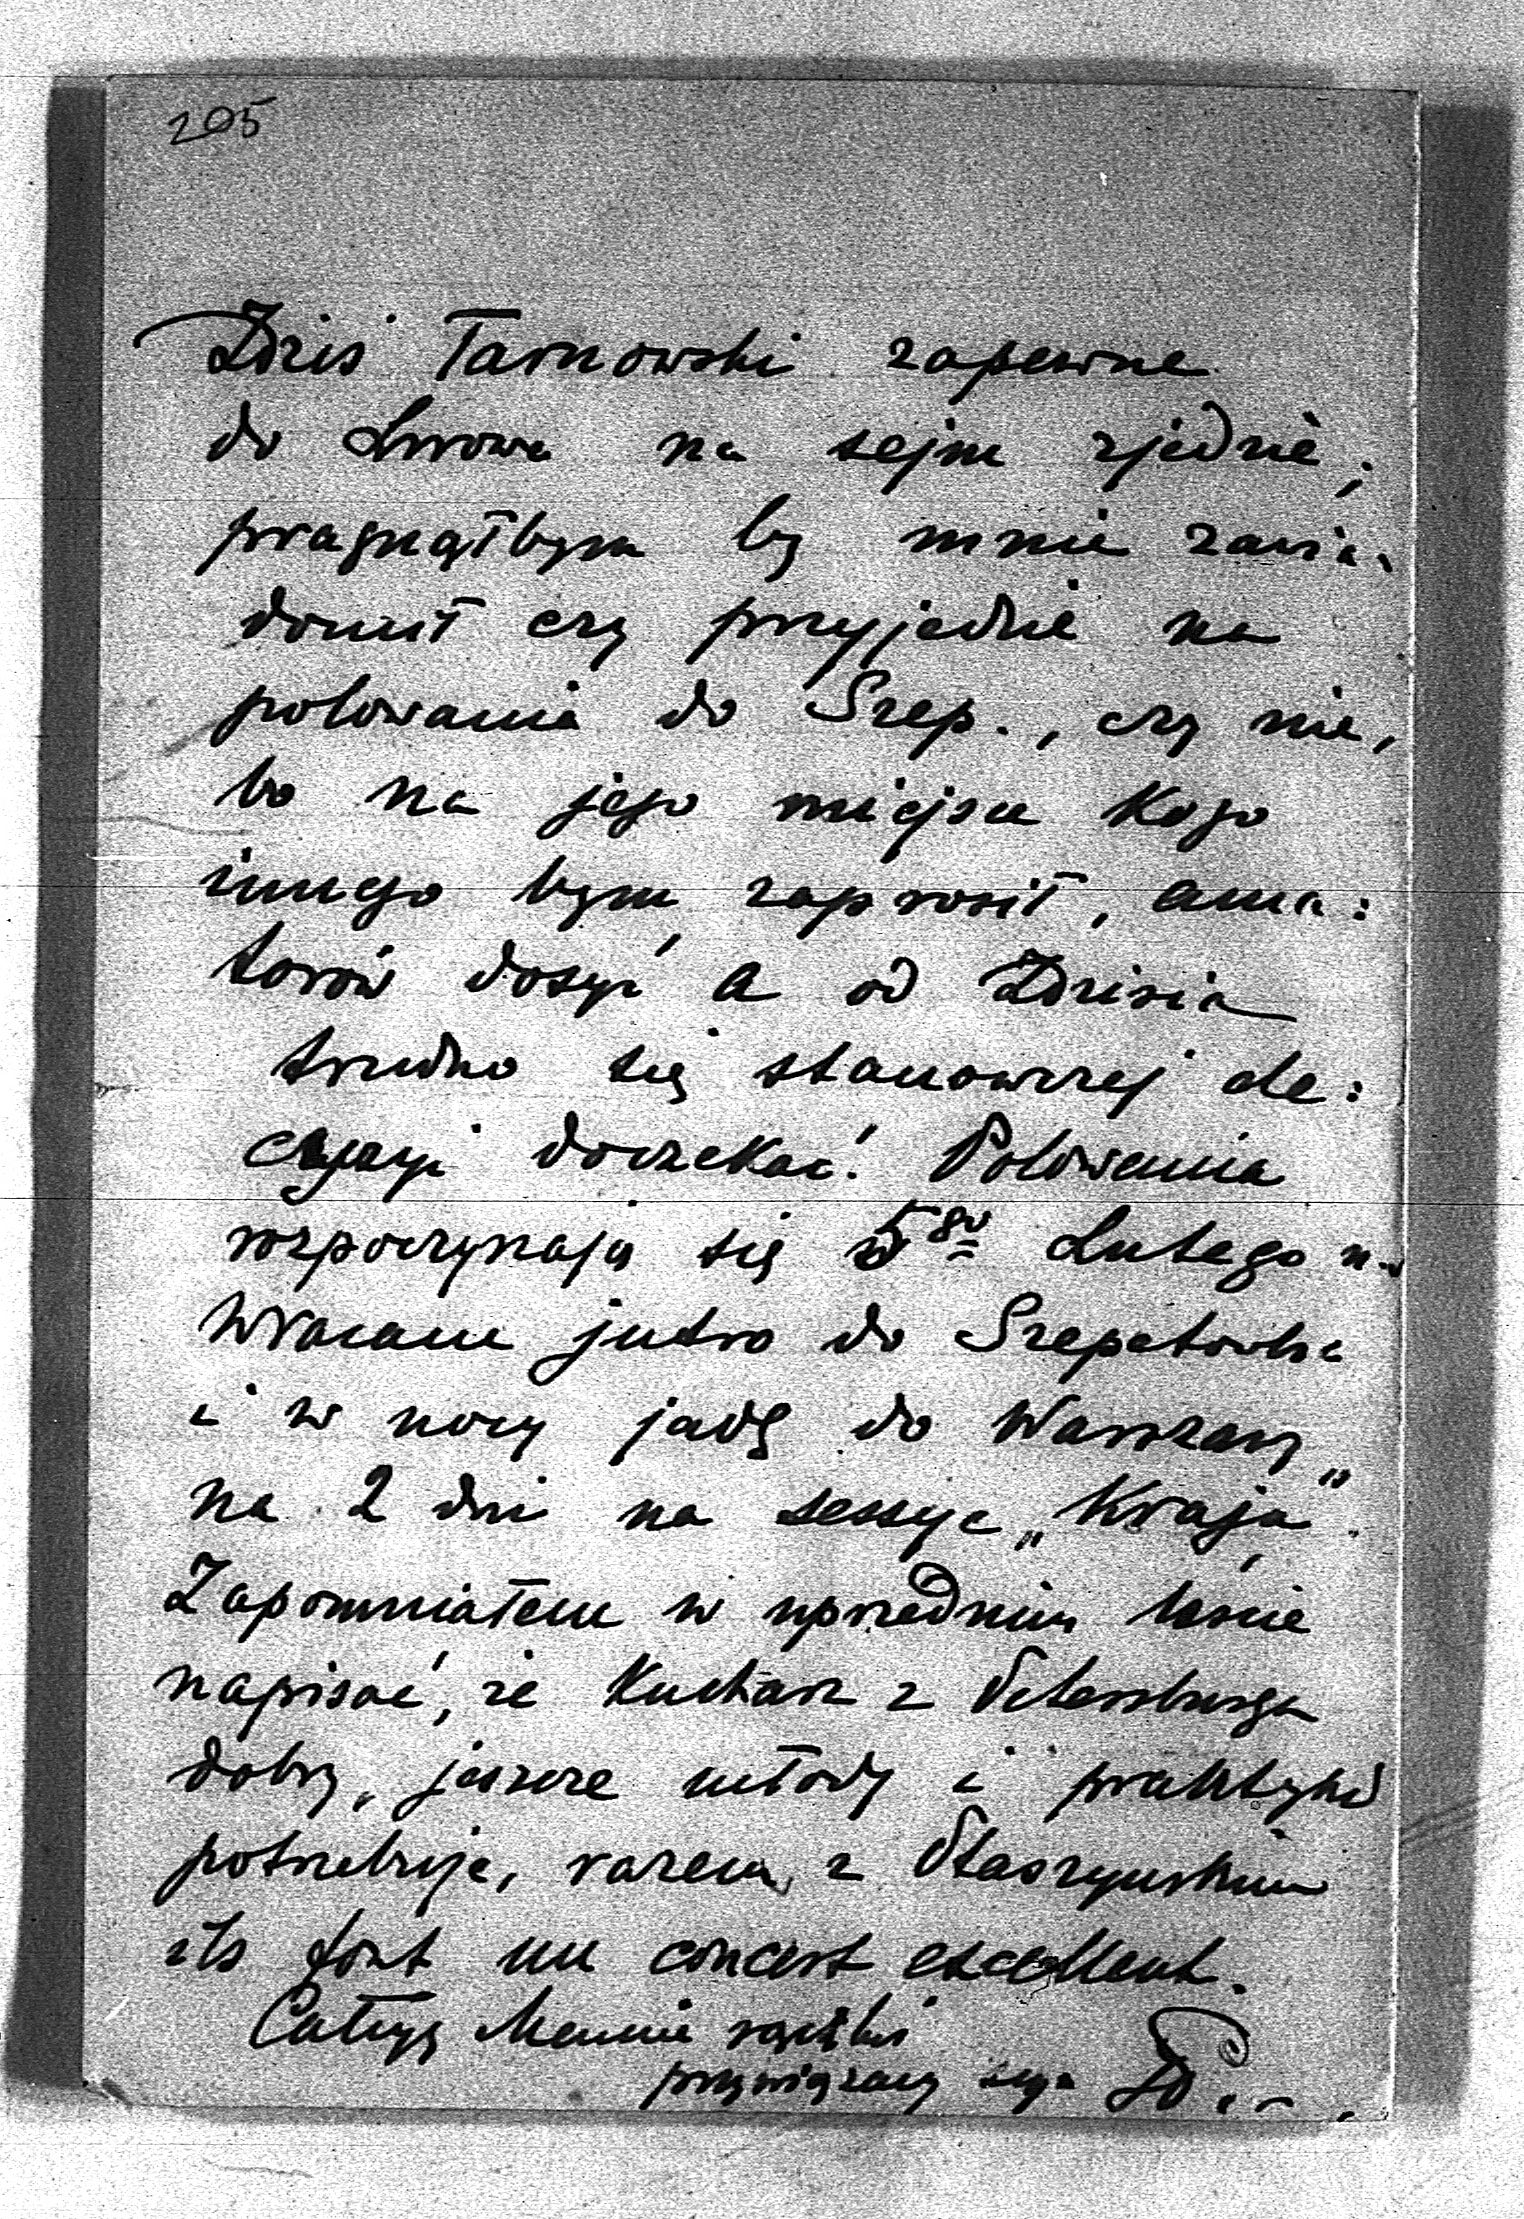 205
Zdziś Tarnowski zapewne
do Lwowa na sejm zjedzie,
pragnąłbym by mnie zawia-
domił czy przyjedzie na
polowanie do Szep., czy nie,
bo na jego miejsce kogo
innego bym zaprosił, ama:
torów dosyć a od Zdzisia
trudno się stanowczej de:
cyzyi doczekać. Polowania
rozpoczynają się 5go Lutego n.s.
Wracam jutro do Szepetówki
i w nocy jadę do Warszawy
na 2 dni na sessye „Kraju”.
Zapomniałem w uprzednim liście
napisać, że kucharz z Petersburga
dobry, jeszcze młody i praktyki
potrzebuje, razem z Staszyńskim
ils font un concert excellent.
Całuję Mamie rączki
przywiązany syn